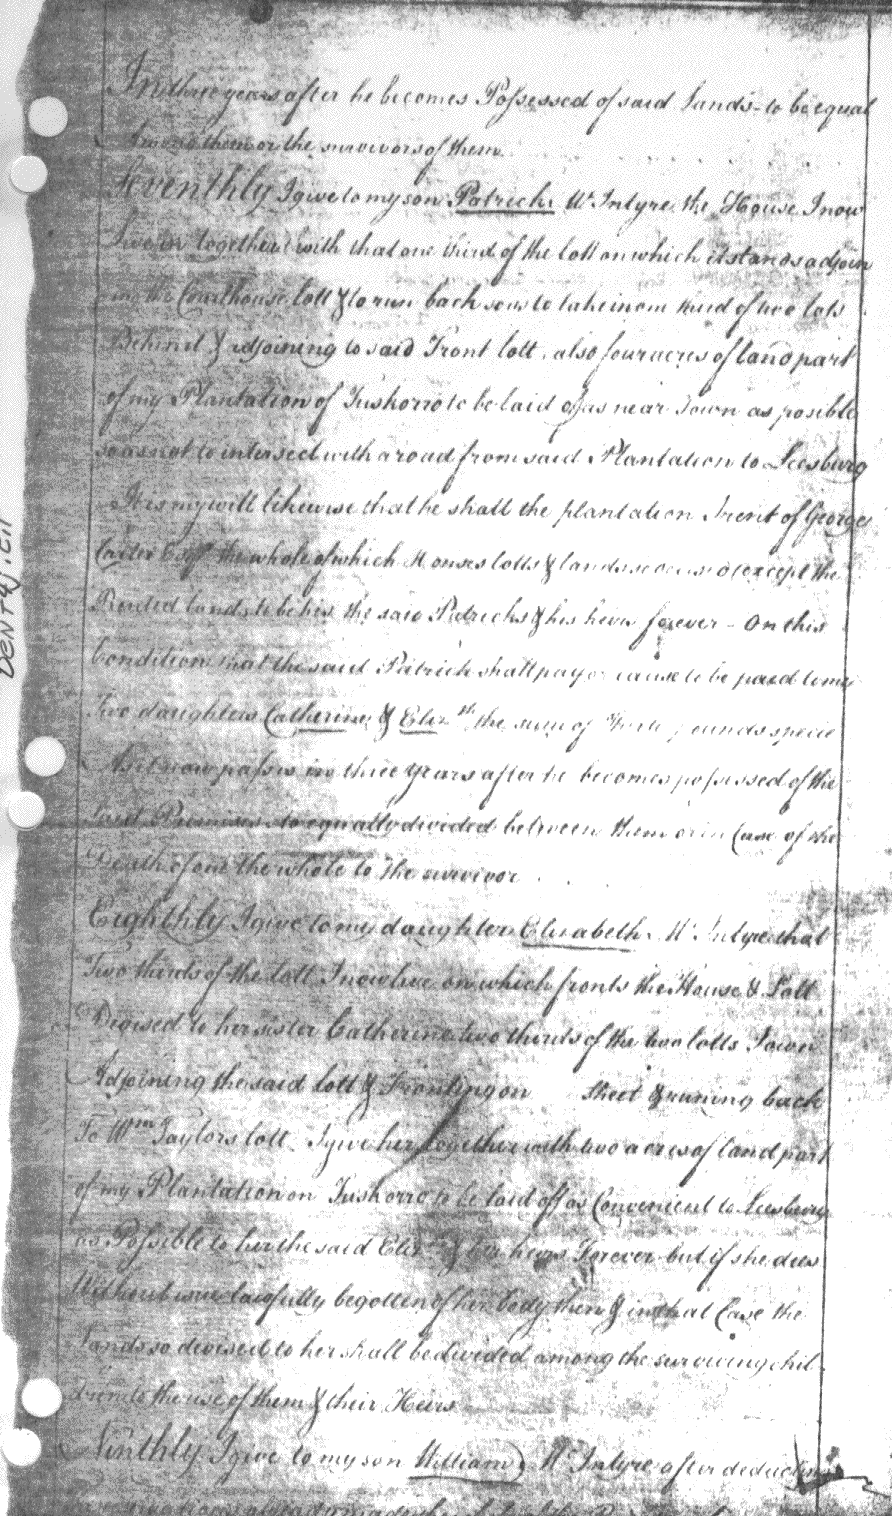 In three years after he becomes Possessed of said Lands to be equal
Among them or the survivors of them
Seventhly I give to my son Patrick McIntyre the House I now
Live in together with that one third of the lott on which it stands adjoin
ing the Courthouse lott & to run back so as to take in one third of two lots
Behind & adjoining to said Front lott, also four acres of land part
of my Plantation of Tuskorro to be laid of as near Town as posible
so as not to intersect with a road from said Plantation to Leesburg
It is my will likewise that he shall the plantation I rent of George
Carter Esqr the whole of which Houses lotts & lands except the
Rented lands to be his the said Patricks & his heirs forever - On this
Condition that the said Patrick shall pay or cause to be paid to my
Two daughters Catherine & Elizth the sum of pounds specie
As it now passes in three years after he becomes possessed of the
Said Premises to equally divided between them or in Case of the
Death of one the whole to the survivor
Eighthly I give to my daughter Elisabeth McIntyre that
Two thirds of the lott I now live on which fronts the House & Lott
Devised to her sister Catherine two thirds of the two lotts Town
Adjoining the said lott & Fronting on street & runing back
To Wm Taylors lott I give her together with two acres of land part
of my Plantation on Tuskorro to be laid off as Convenient to Leesburg
as Possible to her the said Elizth & her heirs Forever but if she dies
Without issue lawfully begotten of her body then & in that Case the
Lands so devised to her shall be divided among the surviving chil
dren to the use of them & their Heirs
Ninthly I give to my son William McIntyre after deducting